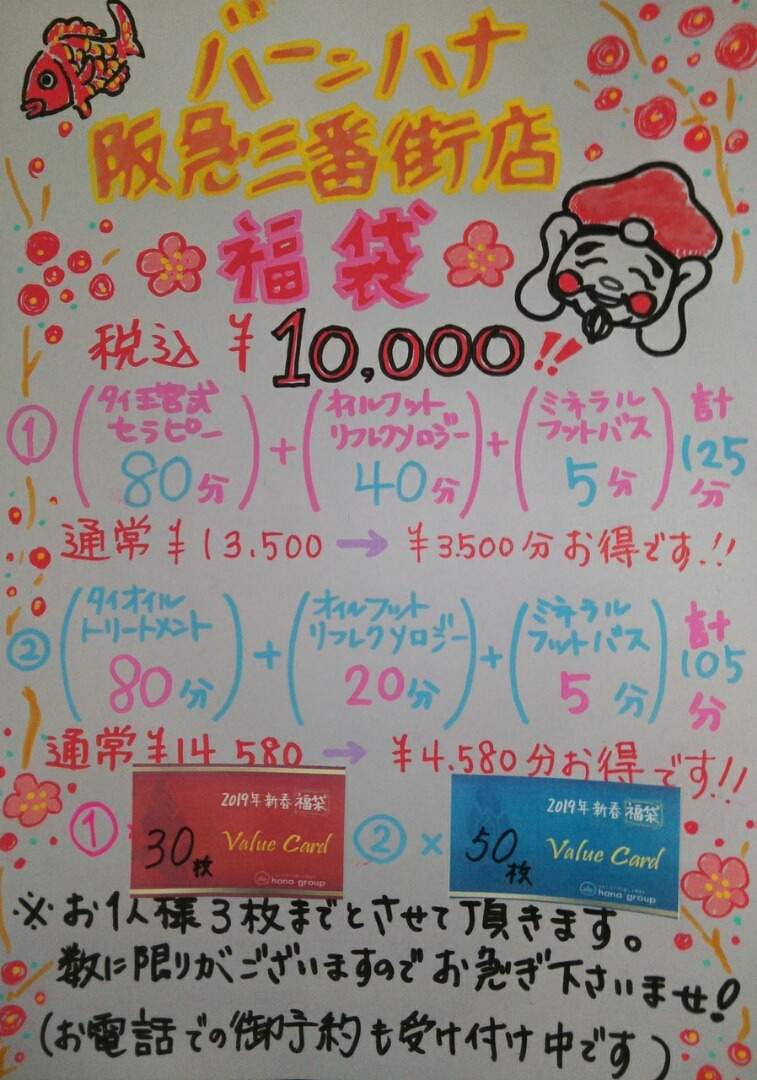 バーンハナ
阪急三番街店
福袋
税込 ¥10,000!!
① (タイ王宮式セラピー 80分) + (オイルフットリフレクソロジー 40分) + (ミネラルフットバス 5分) 計125分
通常 ¥13.500 → ¥3.500分お得です!!
② (タイオイルトリートメント 80分) + (オイルフットリフレクソロジー 20分) + (ミネラルフットバス 5分) 計105分
通常 ¥14.580 → ¥4.580分お得です!!
① 2019年新春福袋 30枚 Value Card hana group
② × 2019年新春福袋 50枚 Value Card hana group
※お1人様3枚までとさせて頂きます。
数に限りがございますのでお急ぎ下さいませ!
(お電話での御予約も受け付け中です)